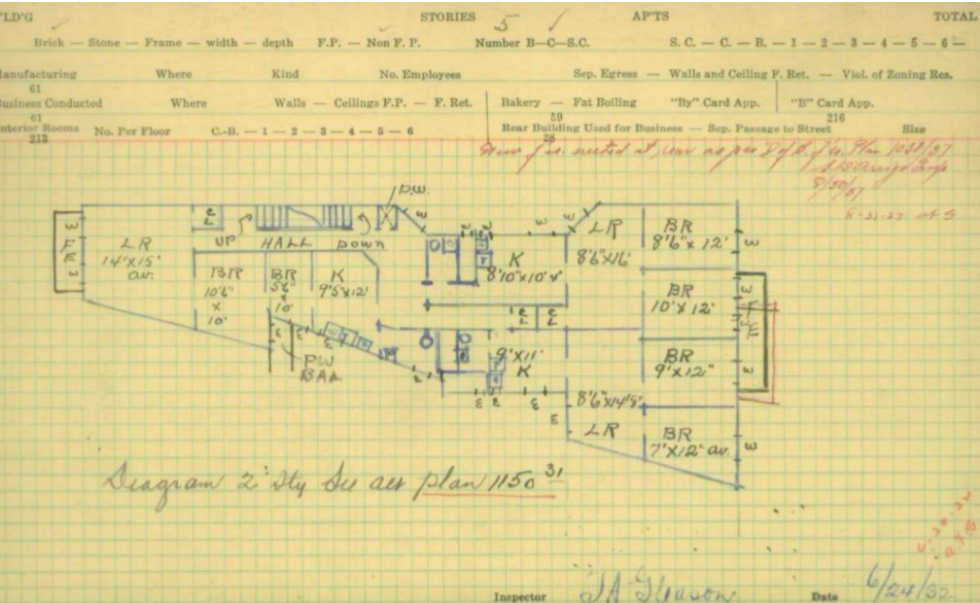 'LD'G STORIES 5 AP'TS TOTAL
Brick — Stone — Frame — width — depth F.P. — Non F. P. Number B—C—S.C. S. C. — C. — B. — 1 — 2 — 3 — 4 — 5 — 6 —
Manufacturing Where Kind No. Employees Sep. Egress — Walls and Ceiling F. Ret. — Viol. of Zoning Res.
61
Business Conducted Where Walls — Ceilings F.P. — F. Ret. Bakery — Fat Boiling "By" Card App. "B" Card App.
61 59 216
Interior Rooms No. Per Floor C.-B. — 1 — 2 — 3 — 4 — 5 — 6 Rear Building Used for Business — Sep. Passage to Street Size
213 28
New f.e. erected at rear as per Plan 1038/37
8/30/37
P.W.
LR
14'X15'
av.
CL
UP HALL DOWN
BR
10'6"
X
10'
BR
5'6"
X
10'
K
9'5"X12'
PW
BAL
K
8'10"X10'4"
CL CL
9'X11'
K
LR
8'6"X16'
BR
8'6"X12'
BR
10'X12'
BR
9'X12'
8'6"X14'9"
LR
BR
7'X12' av.
Diagram 2 Sty See alt plan 1150 31
Inspector J A Gleason Date 6/24/32